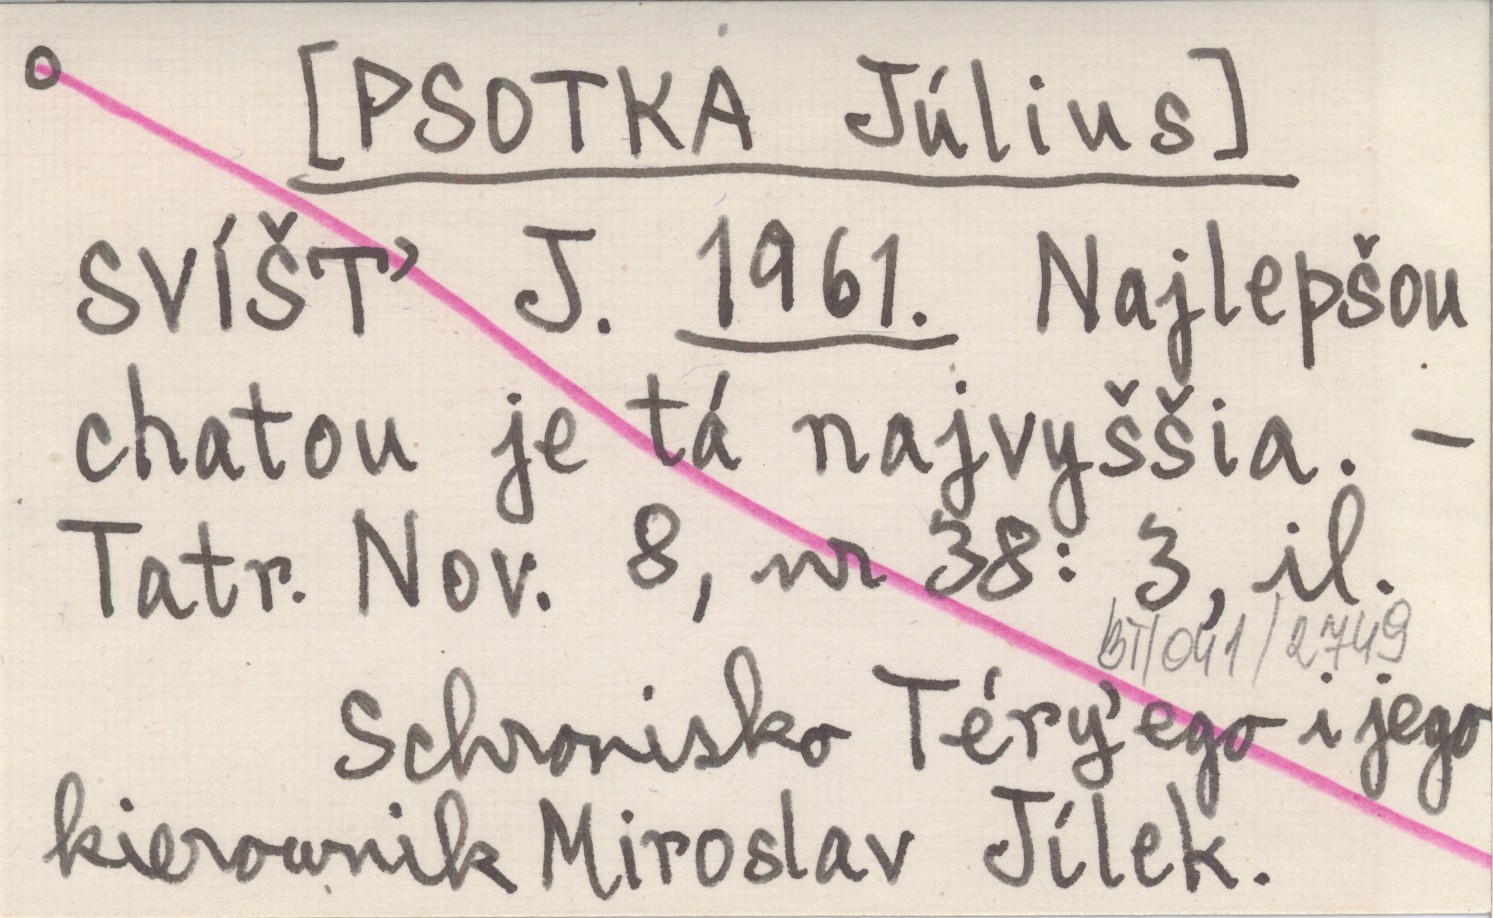 [PSOTKA Július]
SVÍŠŤ J. 1961. Najlepšou
chatou je tá najvyššia. –
Tatr. Nov. 8, nr 38: 3, il.
BT/041/2749
Schronisko Téry'ego i jego
kierownik Miroslav Jílek.